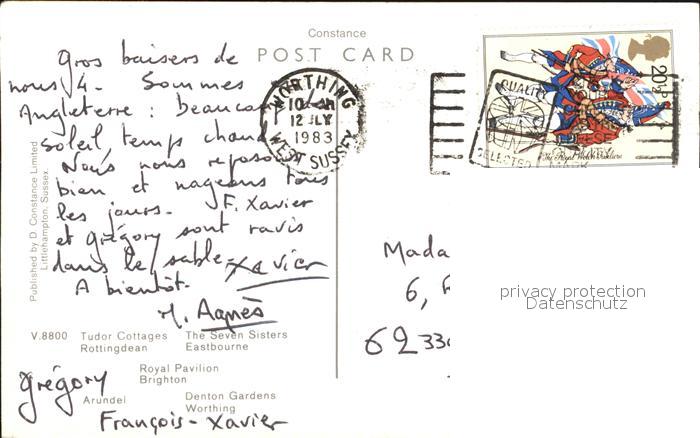 Constance
POST CARD
Gros baisers de
nous 4. Sommes
Angleterre : beaucou
soleil, temps chaud
Nous nous reposo
bien et nageons tous
les jours. F. Xavier
et Grégory sont ravis
dans le sable. Xavier
A bientôt.
M. Agnès
Grégory
François-Xavier
WORTHING
10 - AM
12 JLY
1983
WEST SUSSEX
QUALITY
SELECTED
20½p
The Royal Welch Fusiliers
Mada
6,
62330
privacy protection
Datenschutz
Published by D. Constance Limited
Littlehampton, Sussex.
V.8800 Tudor Cottages The Seven Sisters
Rottingdean Eastbourne
Royal Pavilion
Brighton
Arundel Denton Gardens
Worthing